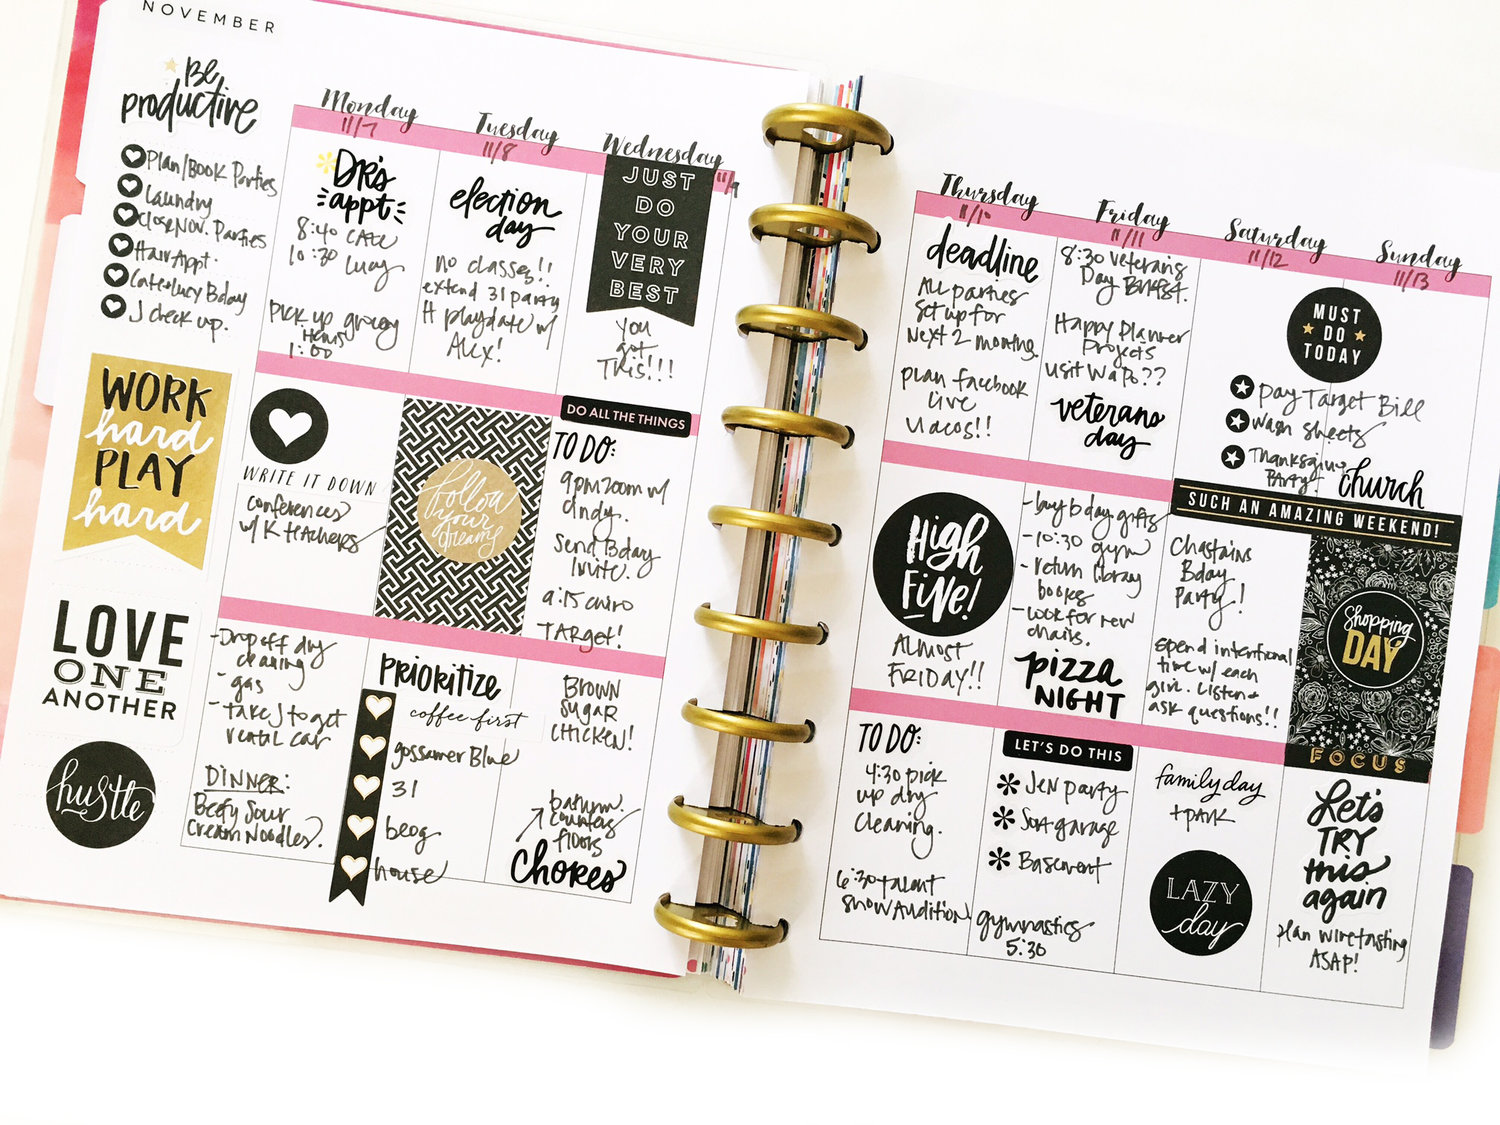 NOVEMBER
Be
productive
Plan/Book Parties
Laundry
Close Nov. Parties
Hair Appt.
Cater Lucy Bday
J check up.
WORK
hard
PLAY
hard
LOVE
ONE
ANOTHER
hustle
Monday
11/7
DR's
appt
8:40 CALL
10:30 Lucy
Pick up grocery
items
1:00
WRITE IT DOWN
conferences
w/ K teachers
- Drop off dry
cleaning
- gas
- take J to get
rental car
DINNER:
Beefy Sour
Cream Noodles?
Tuesday
11/8
election
day
no classes!!
extend 31 party
H playdate w/
Alex!
follow
your
dreams
PRIORITIZE
coffee first
gossamer Blue
31
beog
house
Wednesday
11/9
JUST
DO
YOUR
VERY
BEST
you
got
This!!!
DO ALL THE THINGS
TO DO:
9pm zoom w/
cindy.
Send Bday
Invite.
9:15
TARget!
BROWN
SUGAR
CHICKEN!
counters
floors
CHORES
Thursday
11/10
deadline
All parties
Set up for
Next 2 months.
plan facebook
Live
Vlacos!!
High
FIVE!
ALMOST
FRIDAY!!
TO DO:
4:30 pick
up dry
cleaning.
6:30 talent
show Audition
Friday
11/11
8:30 Veterans
Day Brkfst.
Happy Planner
Projects
visit WaPo??
veterans
day
- buy bday gifts
- 10:30 gym
- return library
books
- Look for new
chairs.
pizza
NIGHT
LET'S DO THIS
Jen party
Sort garage
Basement
gymnastics
5:30
Saturday
11/12
Sunday
11/13
MUST
DO
TODAY
Pay Target Bill
wash sheets
Thanksgiving
Party!
church
SUCH AN AMAZING WEEKEND!
Chastains
Bday
Party!
spend intentional
time w/ each
girl. Listen &
ask questions!!
Shopping
DAY
FOCUS
family day
+ park
LAZY
day
Let's
TRY
this
again
plan wine tasting
ASAP!